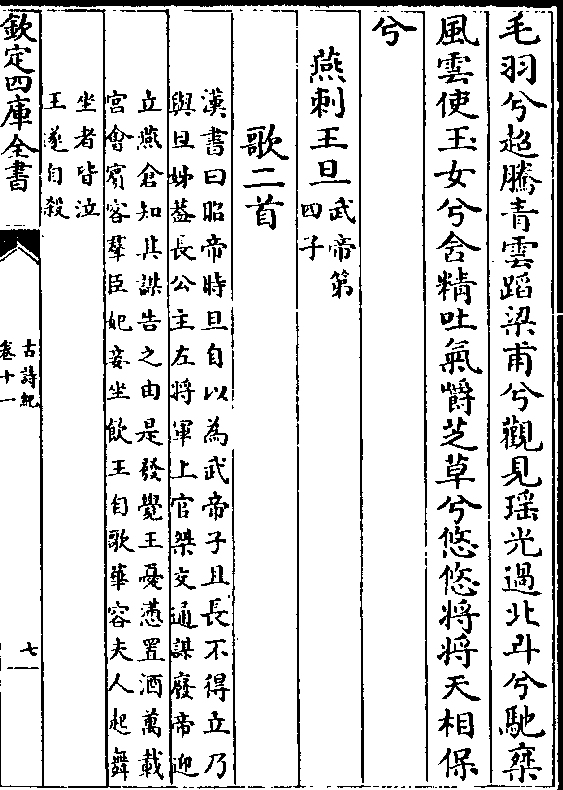 毛羽兮超騰青雲蹈梁甫兮觀見瑶光過北斗兮馳乗
風雲使玉女兮含精吐氣嚼芝草兮悠悠將將天相保
兮
燕刺王旦武帝第
四子
歌二首
漢書曰昭帝時旦自以為武帝子且長不得立乃
與旦姊葢長公主左將軍上官桀交通謀廢帝迎
立燕倉知其謀告之由是發覺王憂懣置酒萬載
宮會賓客羣臣妃妾坐飲王自歌華容夫人起舞
坐者皆泣
王遂自殺
欽定四庫全書
古詩紀
卷十一
七